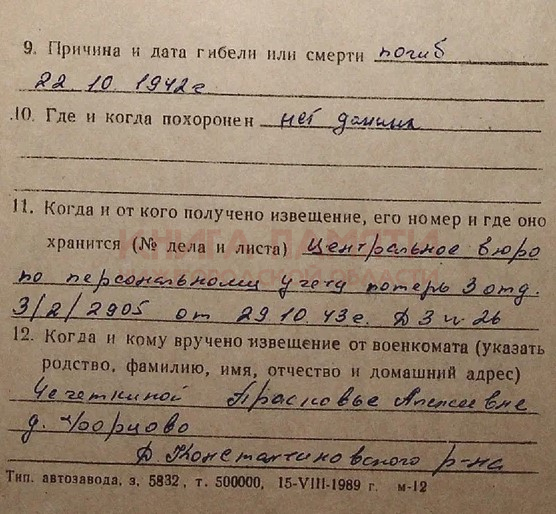 9. Причина и дата гибели или смерти погиб
22 10 1942г
10. Где и когда похоронен нет данных
11. Когда и от кого получено извещение, его номер и где оно
хранится (№ дела и листа) Центральное бюро
по персональному учету потерь 3 отд.
3/2/2905 от 29.10.43г. Д 3 л. 26
12. Когда и кому вручено извещение от военкомата (указать
родство, фамилию, имя, отчество и домашний адрес)
Чечеткиной Прасковье Алексеевне
д.
Д. Константиновского р-на
Тип. автозавода, з. 5832, т. 500000, 15-VIII-1989 г. м-12
КНИГА ПАМЯТИ
ОБЛАСТИ